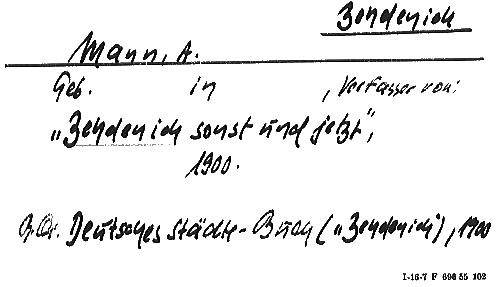 Zehdenick
Mann, A.
Geb. in , Verfasser von:
„Zehdenick sonst und jetzt",
1900.
Deutsches Städte-Buch („Zehdenick), 1900
I-16-7 F 696 55 102